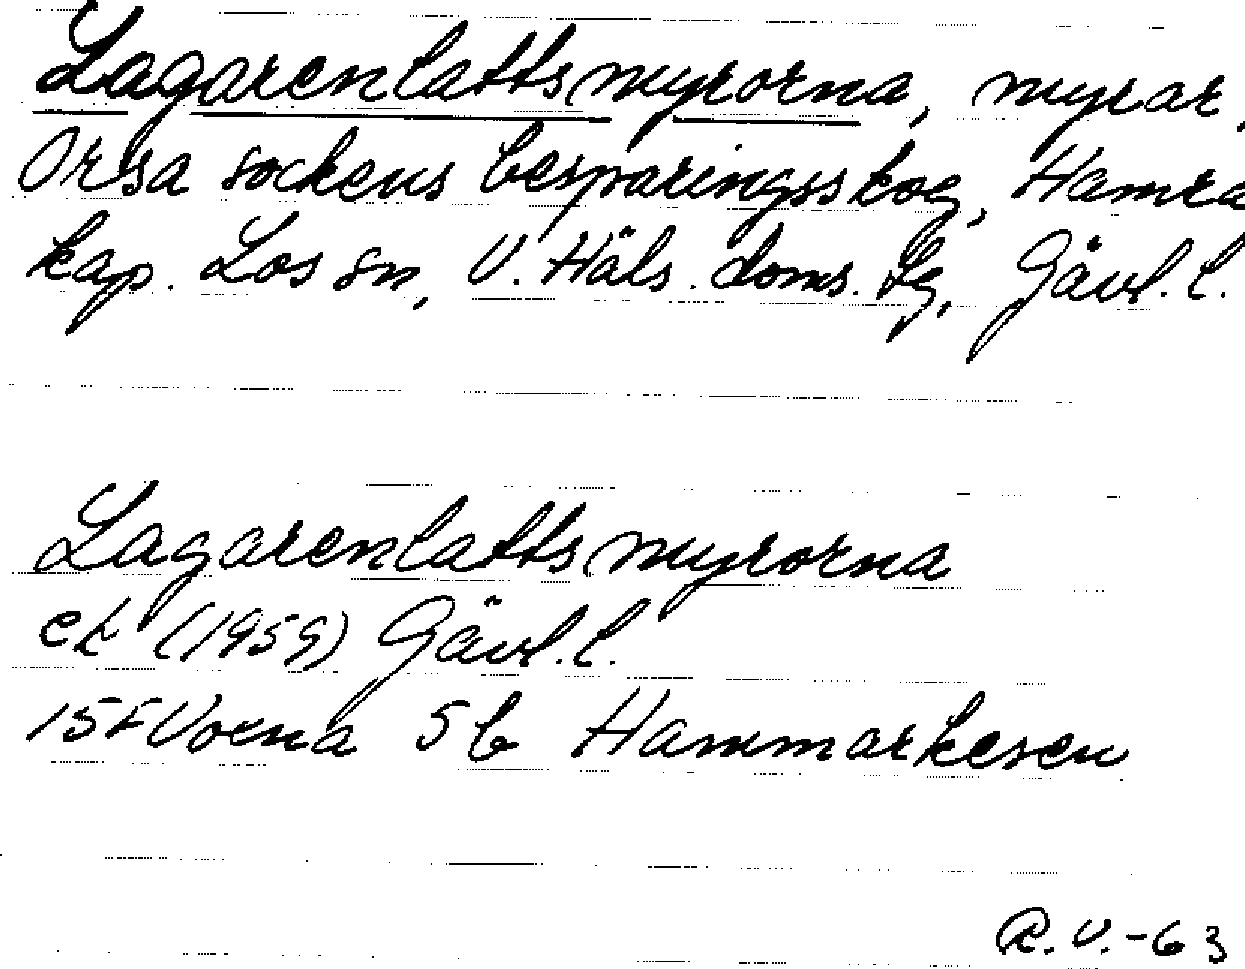 Lagarenlattsmyrorna, myrar,
Orsa sockens besparingsskog, Hamra
kap. Los sn, V. Häls. doms. lg, Gävl. l.
Lagarenlattsmyrorna
ek (1959) Gävl. l.
15F Voxna 5b Hammarkesen
R.V.-63